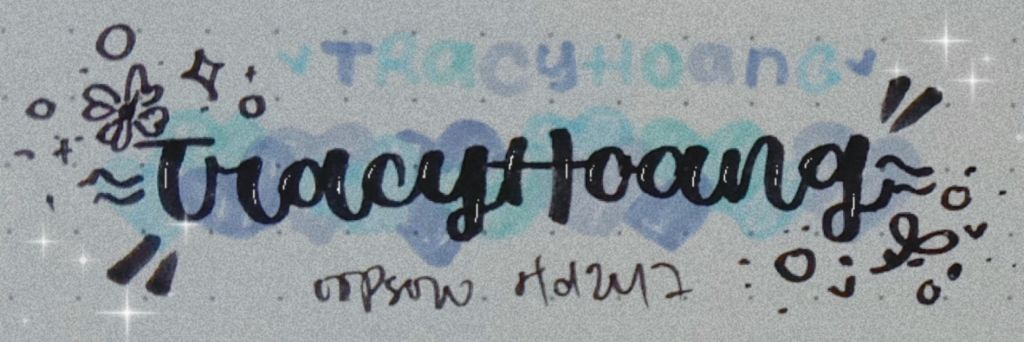 TRacyHoang
TracyHoang